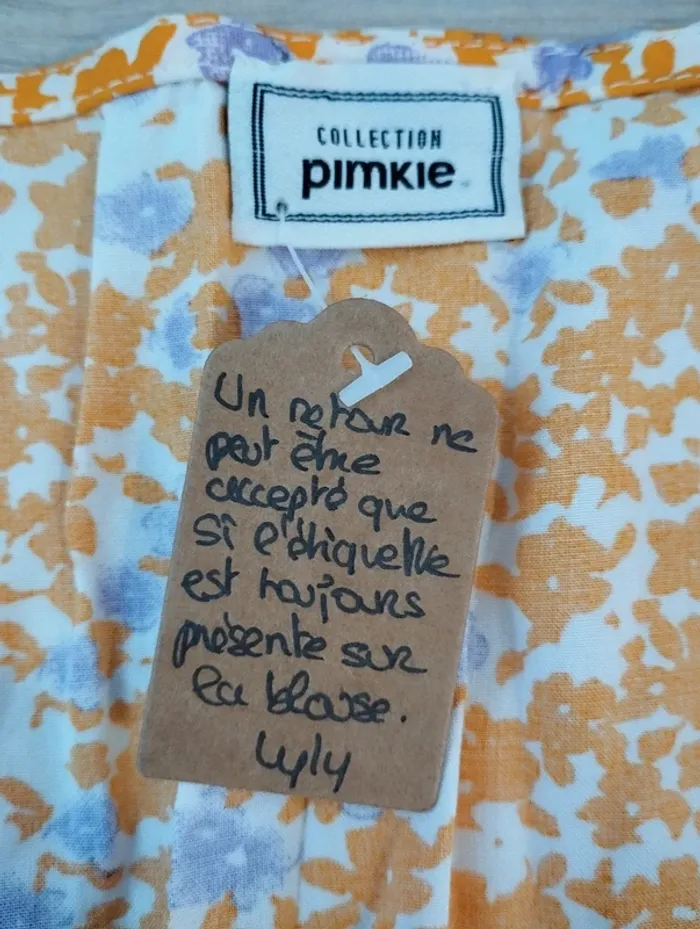 COLLECTION
pimkie
Un retour ne
peut être
accepté que
si l'étiquette
est toujours
présente sur
la blouse.
Lyly